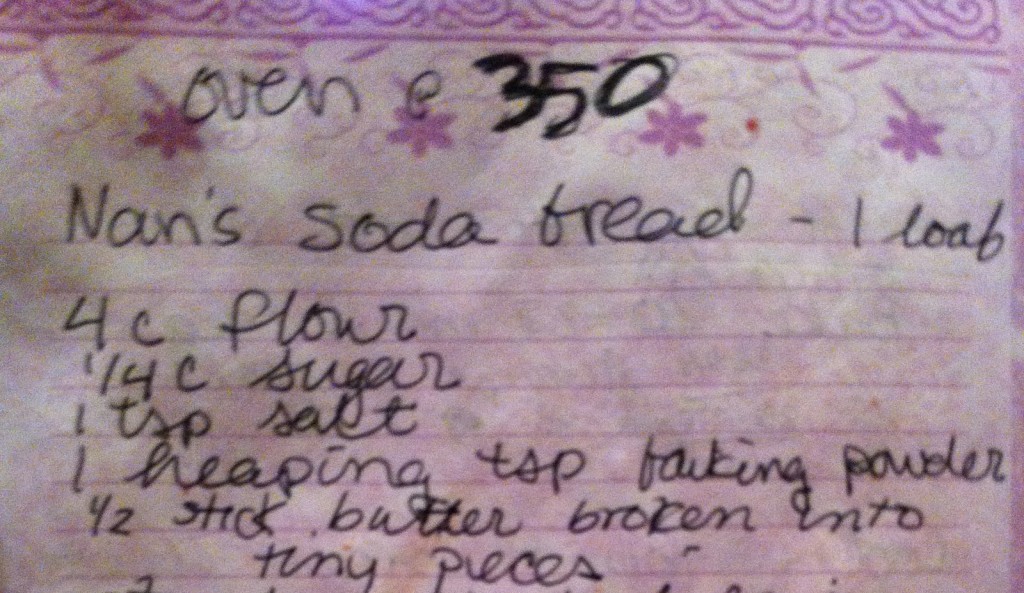 oven @ 350
Nan's soda bread - 1 loaf
4 c flour
1/4 c sugar
1 tsp salt
1 heaping tsp baking powder
1/2 stick butter broken into
tiny pieces